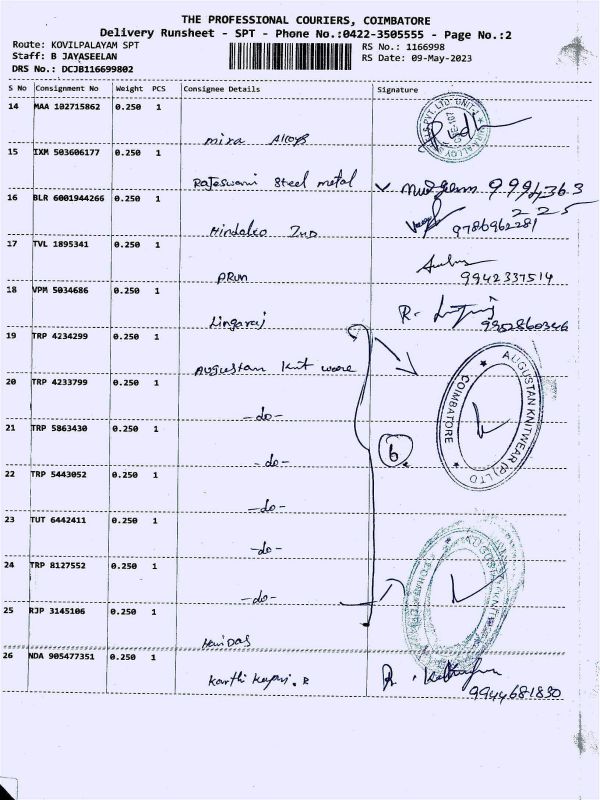 THE PROFESSIONAL COURIERS, COIMBATORE
Delivery Runsheet - SPT - Phone No.:0422-3505555 - Page No.:2
Route: KOVILPALAYAM SPT
RS No.: 1166998
Staff: B JAYASEELAN
RS Date: 09-May-2023
DRS No.: DCJB116699802
S No Consignment No Weight PCS Consignee Details Signature
14 MAA 102715862 0.250 1
mira Alloys
15 IXM 503606177 0.250 1
Rajeswari Steel metal
9994363
225
16 BLR 6001944266 0.250 1
Hindalco Ind
9786962281
17 TVL 1895341 0.250 1
ARun
9942337514
18 VPM 5034686 0.250 1
Lingaraj
R.
9952860346
19 TRP 4234299 0.250 1
Augustan knit ware
AUGUSTAN KNITWEAR (P) LTD
COIMBATORE
20 TRP 4233799 0.250 1
-do-
21 TRP 5863430 0.250 1
-do-
6.
22 TRP 5443052 0.250 1
-do-
23 TUT 6442411 0.250 1
-do-
24 TRP 8127552 0.250 1
-do-
25 RJP 3145106 0.250 1
HariDas
26 NDA 905477351 0.250 1
Karthi Keyan. R
9944681830